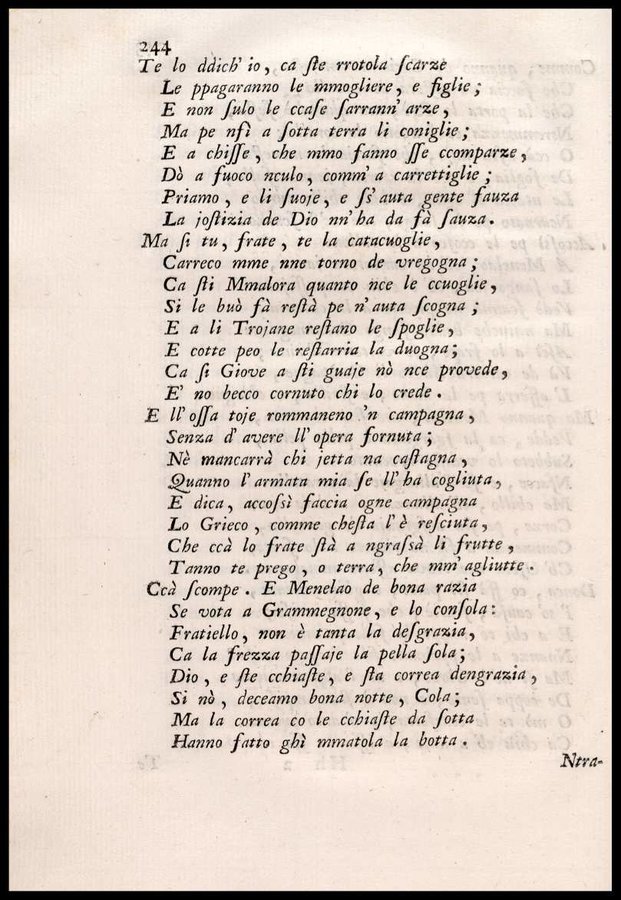 244
Te lo ddich' io, ca ſte rrotola ſcarze
Le ppagaranno le mmogliere, e figlie;
E non ſulo le ccaſe ſarrann' arze,
Ma pe nſì a ſotta terra li coniglie;
E a chiſſe, che mmo fanno ſſe ccomparze,
Dò a fuoco nculo, comm' a carrettiglie;
Priamo, e li ſuoje, e ſs' auta gente fauza
La joſtizia de Dio nn' ha da fà ſauza.
Ma ſi tu, frate, te la catacuoglie,
Carreco mme nne torno de vregogna;
Ca ſti Mmalora quanto nce le ccuoglie,
Si le buò fà reſtà pe n' auta ſcogna;
E a li Trojane reſtano le ſpoglie,
E cotte peo le reſtarria la duogna;
Ca ſi Giove a ſti guaje nò nce provede,
E' no becco cornuto chi lo crede.
E ll' oſſa toje rommaneno 'n campagna,
Senza d' avere ll' opera fornuta;
Nè mancarrà chi jetta na caſtagna,
Quanno l' armata mia ſe ll' ha cogliuta,
E dica, accoſsì faccia ogne campagna
Lo Grieco, comme cheſta l' è reſciuta,
Che ccà lo frate ſtà a ngraſsà li frutte,
Tanno te prego, o terra, che mm' agliutte.
Ccà ſcompe. E Menelao de bona razia
Se vota a Grammegnone, e lo conſola:
Fratiello, non è tanta la deſgrazia,
Ca la frezza paſſaje la pella ſola;
Dio, e ſte cchiaſte, e ſta correa dengrazia,
Si nò, deceamo bona notte, Cola;
Ma la correa co le cchiaſte da ſotta
Hanno fatto ghì mmatola la botta.
Ntra-